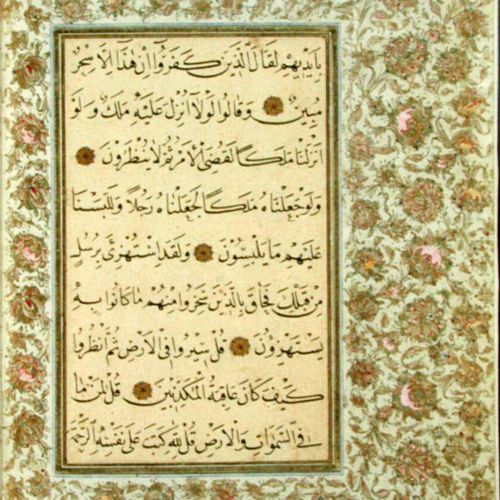 بِاَيْدِيهِمْ لَقَالَ الَّذِينَ كَفَرُوا اِنْ هٰذَا اِلَّا سِحْرٌ
مُبِينٌ وَقَالُوا لَوْلَا اُنْزِلَ عَلَيْهِ مَلَكٌ وَلَوْ
اَنْزَلْنَا مَلَكًا لَقُضِيَ الْاَمْرُ ثُمَّ لَا يُنْظَرُونَ
وَلَوْ جَعَلْنَاهُ مَلَكًا لَجَعَلْنَاهُ رَجُلًا وَلَلَبَسْنَا
عَلَيْهِمْ مَا يَلْبِسُونَ وَلَقَدِ اسْتُهْزِئَ بِرُسُلٍ
مِنْ قَبْلِكَ فَحَاقَ بِالَّذِينَ سَخِرُوا مِنْهُمْ مَا كَانُوا بِهِ
يَسْتَهْزِؤُنَ قُلْ سِيرُوا فِي الْاَرْضِ ثُمَّ انْظُرُوا
كَيْفَ كَانَ عَاقِبَةُ الْمُكَذِّبِينَ قُلْ لِمَنْ مَا
فِي السَّمٰوَاتِ وَالْاَرْضِ قُلْ لِلّٰهِ كَتَبَ عَلٰى نَفْسِهِ الرَّحْمَةَ